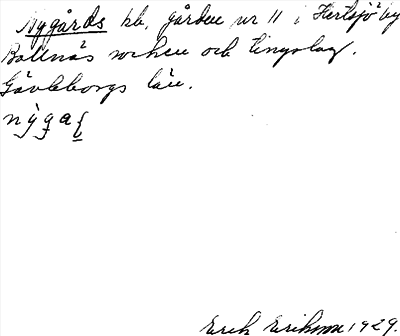 Nygårds kb, gården nr 11 i Hertsjö by
Bollnäs socken och tingslag.
Gävleborgs län.
Erik Erikson 1929.